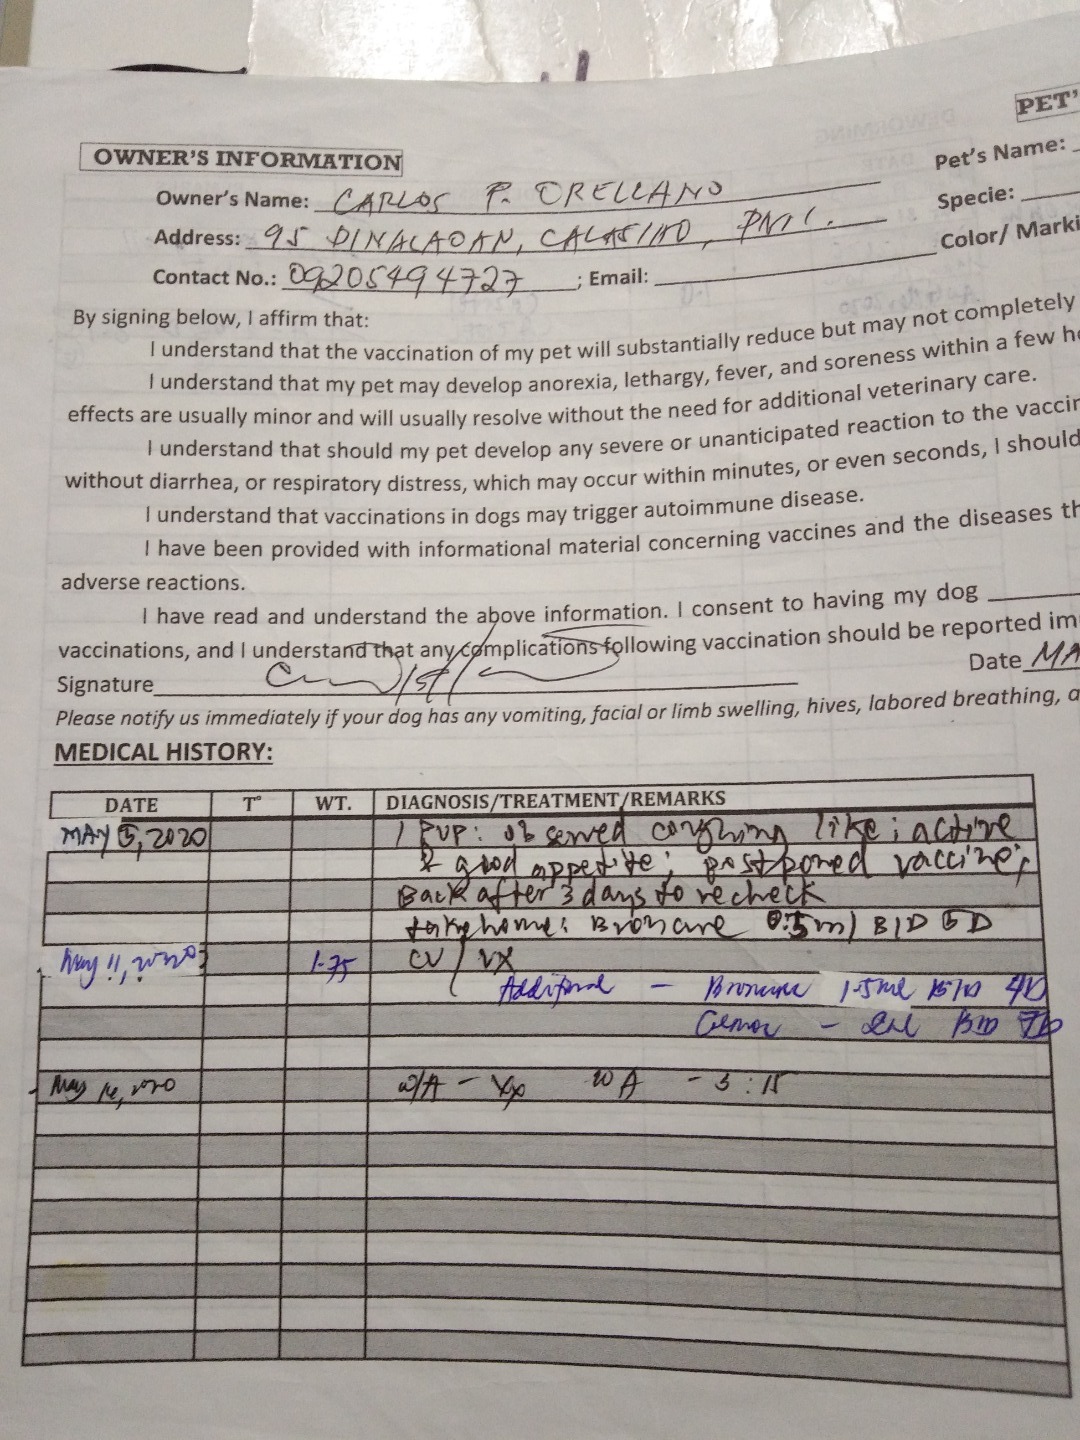 PET'
OWNER'S INFORMATION
Pet's Name:
Owner's Name: CARLOS P. ORELLANO
Specie:
Address: 95 DINALAOAN, CALASIAO,
Color/ Marki
Contact No.: 09205494727 ; Email:
By signing below, I affirm that:
I understand that the vaccination of my pet will substantially reduce but may not completely
I understand that my pet may develop anorexia, lethargy, fever, and soreness within a few h
effects are usually minor and will usually resolve without the need for additional veterinary care.
I understand that should my pet develop any severe or unanticipated reaction to the vaccin
without diarrhea, or respiratory distress, which may occur within minutes, or even seconds, I should
I understand that vaccinations in dogs may trigger autoimmune disease.
I have been provided with informational material concerning vaccines and the diseases th
adverse reactions.
I have read and understand the above information. I consent to having my dog
vaccinations, and I understand that any complications following vaccination should be reported im
Signature Date MA
Please notify us immediately if your dog has any vomiting, facial or limb swelling, hives, labored breathing, a
MEDICAL HISTORY:
DATE T° WT. DIAGNOSIS/TREATMENT/REMARKS
MAY 5, 2020 observed coughing like; active
& good appetite; postponed vaccine;
Back after 3 days to recheck
take home: Broncure 0.5ml BID 5D
May 11, 2020 1.75 CV / VX
Additional - 1.5ml BID 4D
- BID 7D
May 16, 2020 - 3:15